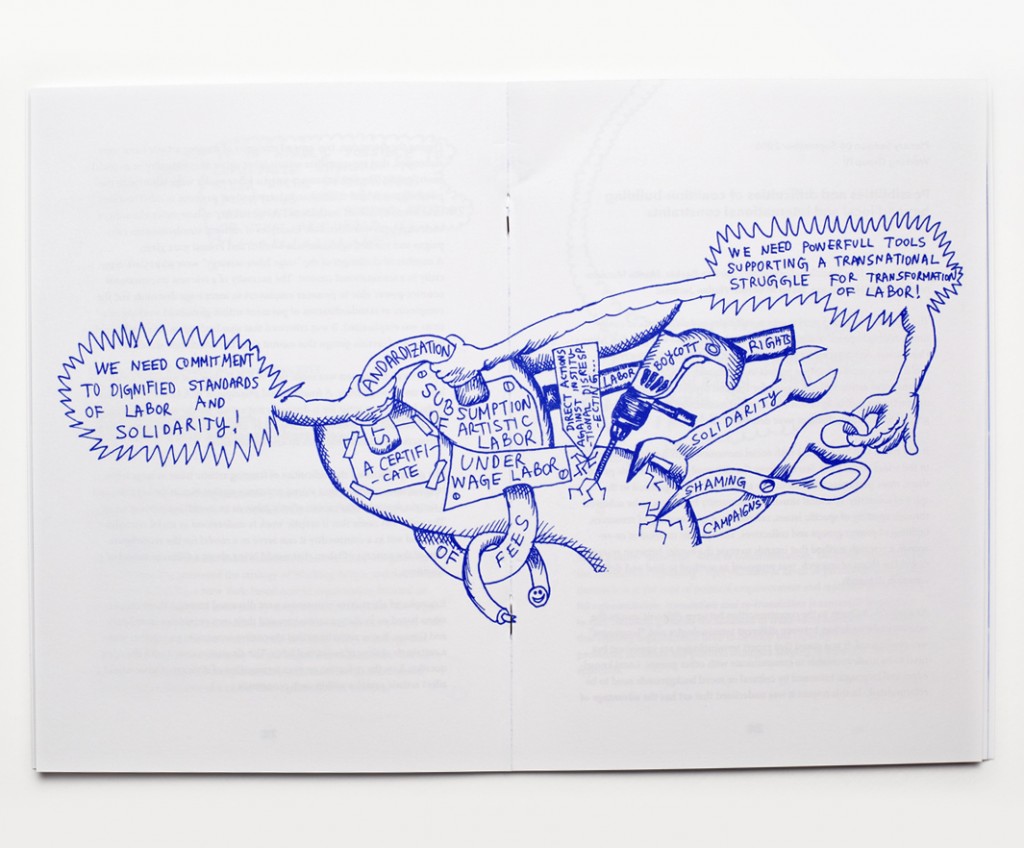 WE NEED COMMITMENT
TO DIGNIFIED STANDARDS
OF LABOR AND
SOLIDARITY!
ANDARDIZATION
IS
A CERTIFI-
-CATE
OF
FEES
SUB
OF
SUMPTION
ARTISTIC
LABOR
UNDER
WAGE LABOR
DIRECT ACTIONS
AGAINST INSTITU-
-TIONAL DISRESP-
-ECTING...
LABOR
RIGHTS
BOYCOTT
SOLIDARITY
SHAMING
CAMPAIGNS
WE NEED POWERFULL TOOLS
SUPPORTING A TRANSNATIONAL
STRUGGLE FOR TRANSFORMATION
OF LABOR!